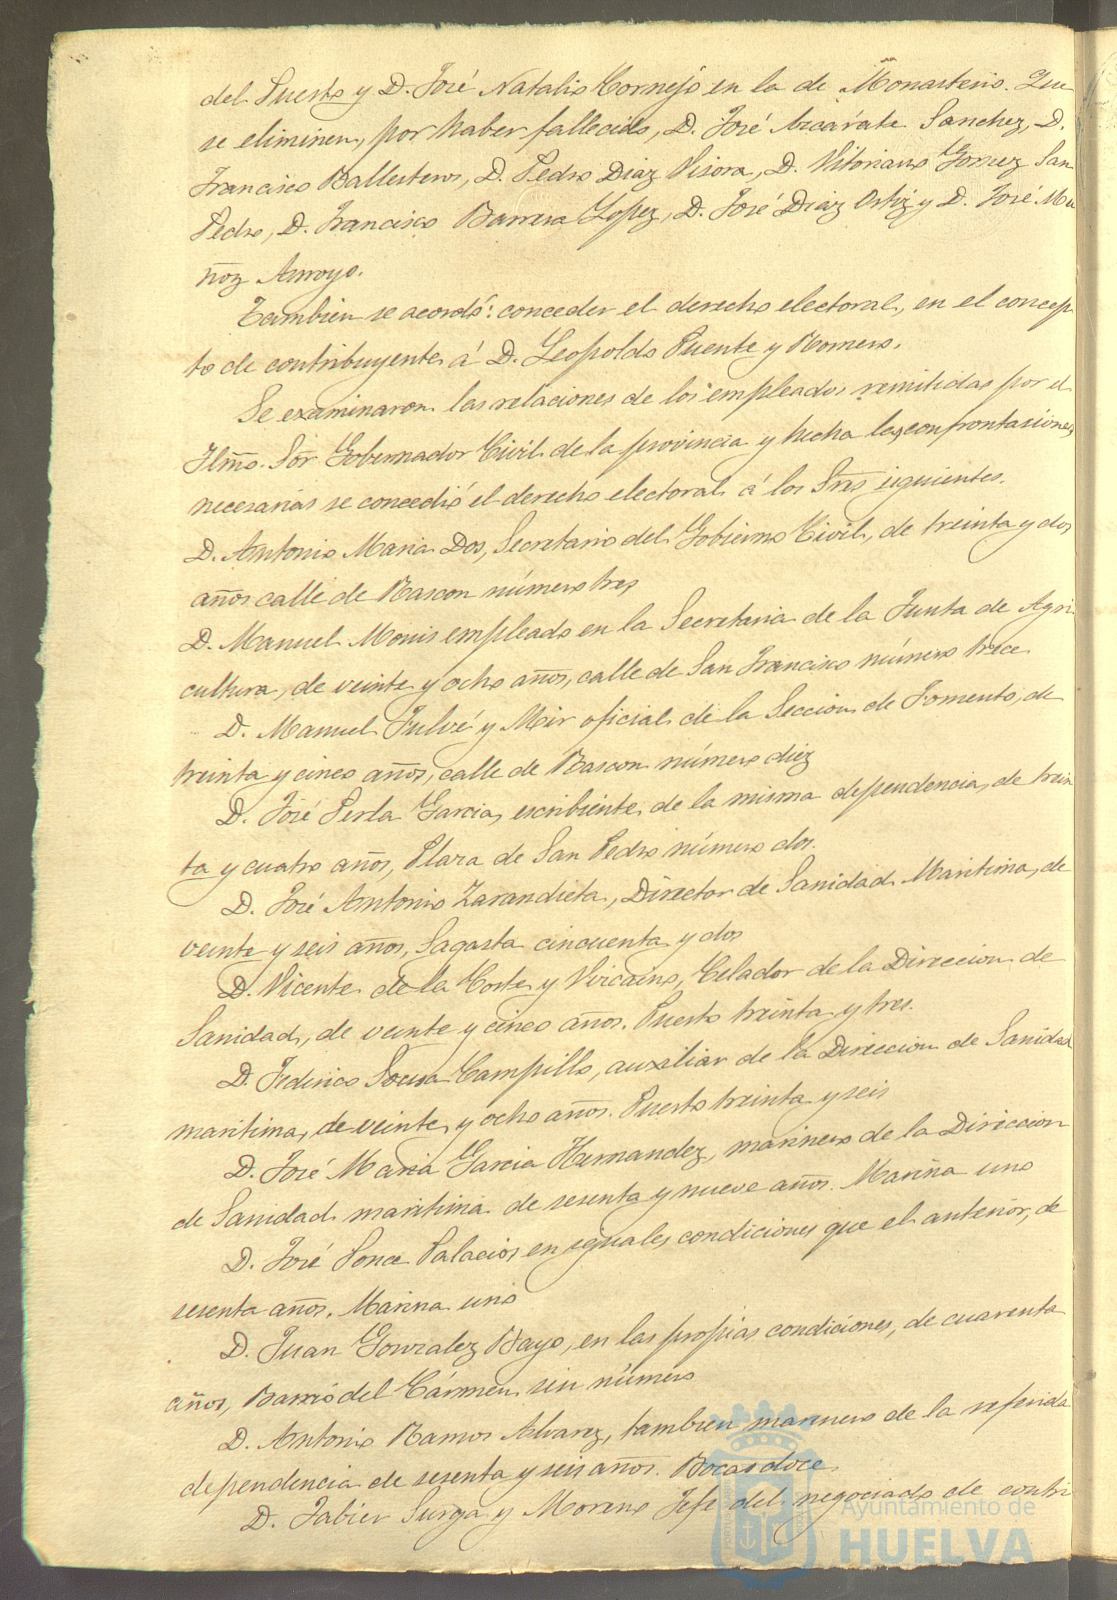 del Puerto y D. José Natalio Cornejo en la de Monasterio. Que
se eliminen, por haber fallecido, D. José Azcárate Sanchez, D.
Francisco Ballesteros, D. Pedro Diaz Visora, D. Vitoriano Gomez San
Pedro, D. Francisco Barrera Lopez, D. José Diaz Ortiz y D. José Mu
ñoz Arroyo.
Tambien se acordó: conceder el derecho electoral, en el concep
to de contribuyente á D. Leopoldo Puente y Romero.
Se examinaron las relaciones de los empleados remitidas por el
Ilmo. Sor Gobernador Civil de la provincia y hecha las confrontaciones
necesarias se concedió el derecho electoral á los Sres siguientes.
D. Antonio Maria Dos, Secretario del Gobierno Civil, de treinta y dos
años calle de Rascon número tres
D. Manuel Monis empleado en la Secretaria de la Junta de Agri
cultura, de veinte y ocho años, calle de San Francisco número trece
D. Manuel Fulvé y Mir oficial de la Seccion de Fomento, de
treinta y cinco años, calle de Rascon número diez
D. José Perla Garcia, escribiente de la misma dependencia, de trein
ta y cuatro años, Plaza de San Pedro número dos.
D. José Antonio Zarandieta, Director de Sanidad Maritima, de
veinte y seis años, Sagasta cincuenta y dos
D. Vicente de la Corte y Vizcaino, Celador de la Direccion de
Sanidad, de veinte y cinco años. Puerto treinta y tres.
D. Federico Sousa Campillo, auxiliar de la Direccion de Sanidad
maritima, de veinte y ocho años. Puerto treinta y seis
D. José Maria Garcia Hernandez, marinero de la Direccion
de Sanidad maritima de sesenta y nueve años. Marina uno
D. José Ponce Palacios en iguales condiciones que el anterior, de
sesenta años. Marina uno
D. Juan Gonzalez Bayo, en las propias condiciones, de cuarenta
años, Barrio del Cármen sin número
D. Antonio Ramos Alvarez, tambien marinero de la referida
dependencia de sesenta y seis años. Bocas doce.
D. Jabier Surga y Moreno Jefe del negociado de contri
Ayuntamiento de
HUELVA